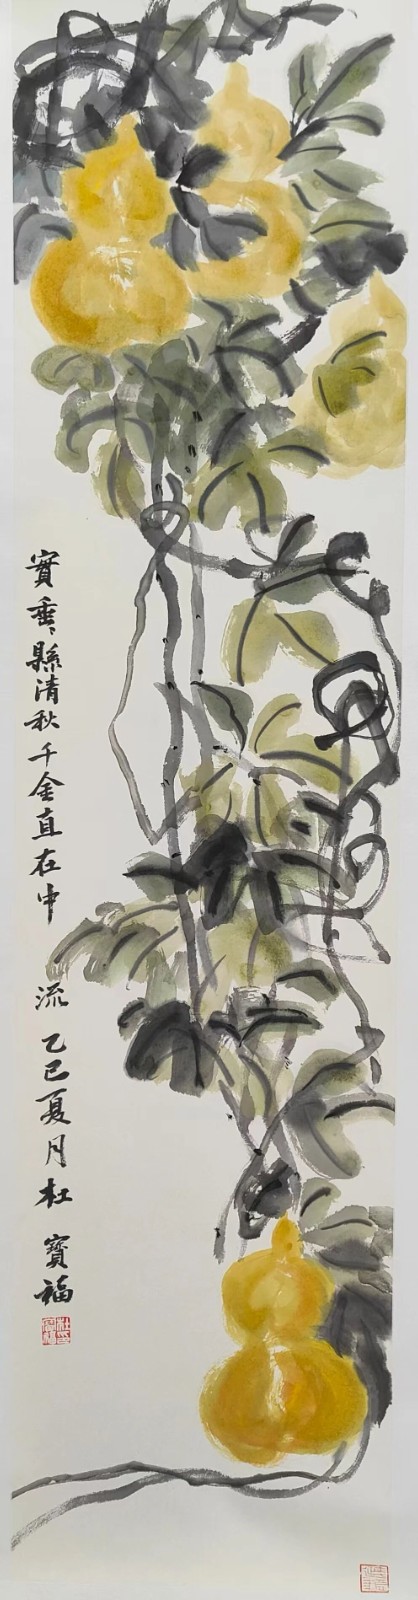 實垂〻縣清秋千金直在中流乙巳夏月杜寶福